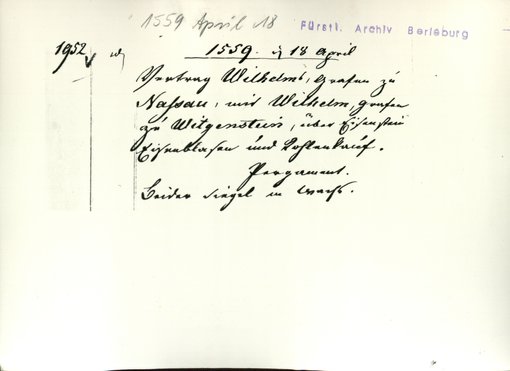 1559 April 18
Fürstl. Archiv Berleburg
1952
1559. 18 April
Vertrag Wilhelms, Grafen zu
Nassau, mit Wilhelm, Grafen
zu Witgenstein, über Eisenstein
Eisenblasen und Kohlenkauf.
Pergament.
Beider Siegel in Wachs.